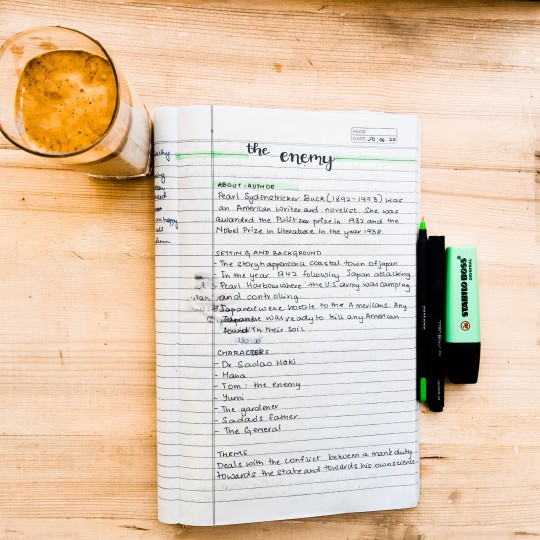 PAGE
DATE 20 06 20
the enemy
ABOUT: AUTHOR
Pearl Sydenstricker Buck (1892-1973) was
an American writer and novelist. She was
awarded the Pulitzer prize in 1932 and the
Nobel Prize in Literature in the year 1938.
SETTING AND BACKGROUND
- The story happens in a coastal town of japan
- In the year 1942 following Japan attacking
Pearl Harbour where the U.S army was camping
and controlling.
Japanese were hostile to the Americans. Any
Japanese was ready to kill any American
found in their soil
CHARACTERS
- Dr Sadao Hoki
- Hana
- Tom: the enemy
- Yumi
- The gardener
- Sadao's father
- The General
THEME
Deals with the conflict between a man's duty
towards the state and towards his own science
STABILO BOSS
ORIGINAL